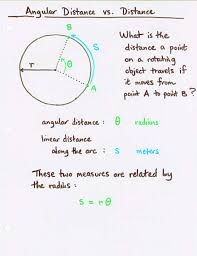 Angular Distance vs. Distance
B
S
θ
r
A
What is the
distance a point
on a rotating
object travels if
it moves from
point A to point B?
angular distance : θ radians
linear distance
along the arc : S meters
These two measures are related by
the radius :
S = rθ